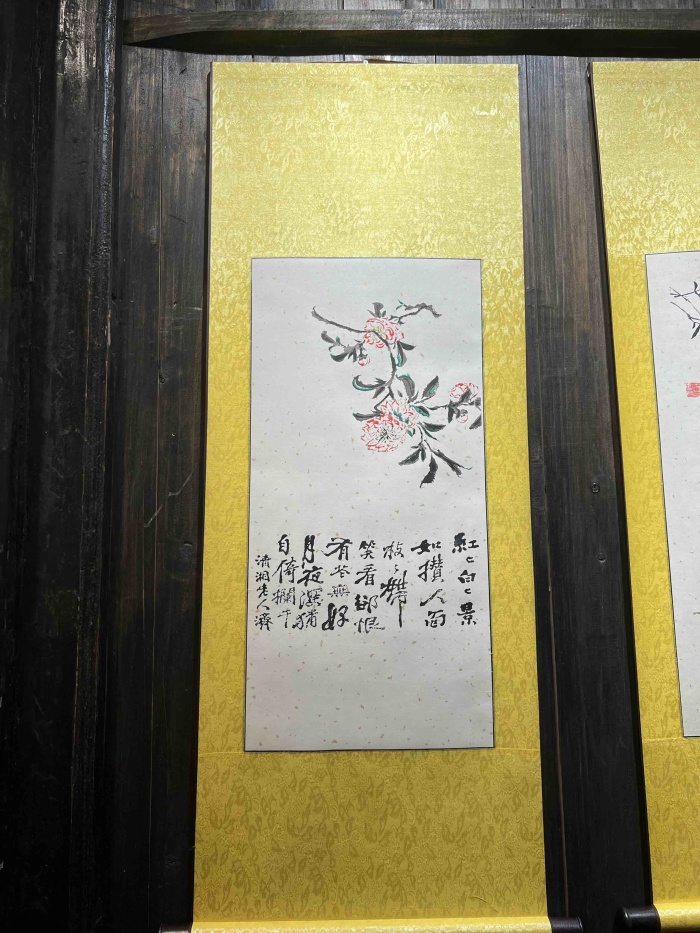 紅〻白〻景
如攢人面
枝〻
笑看卻恨
有花無好
月夜深猶
自倚欄干
清湘老人濟